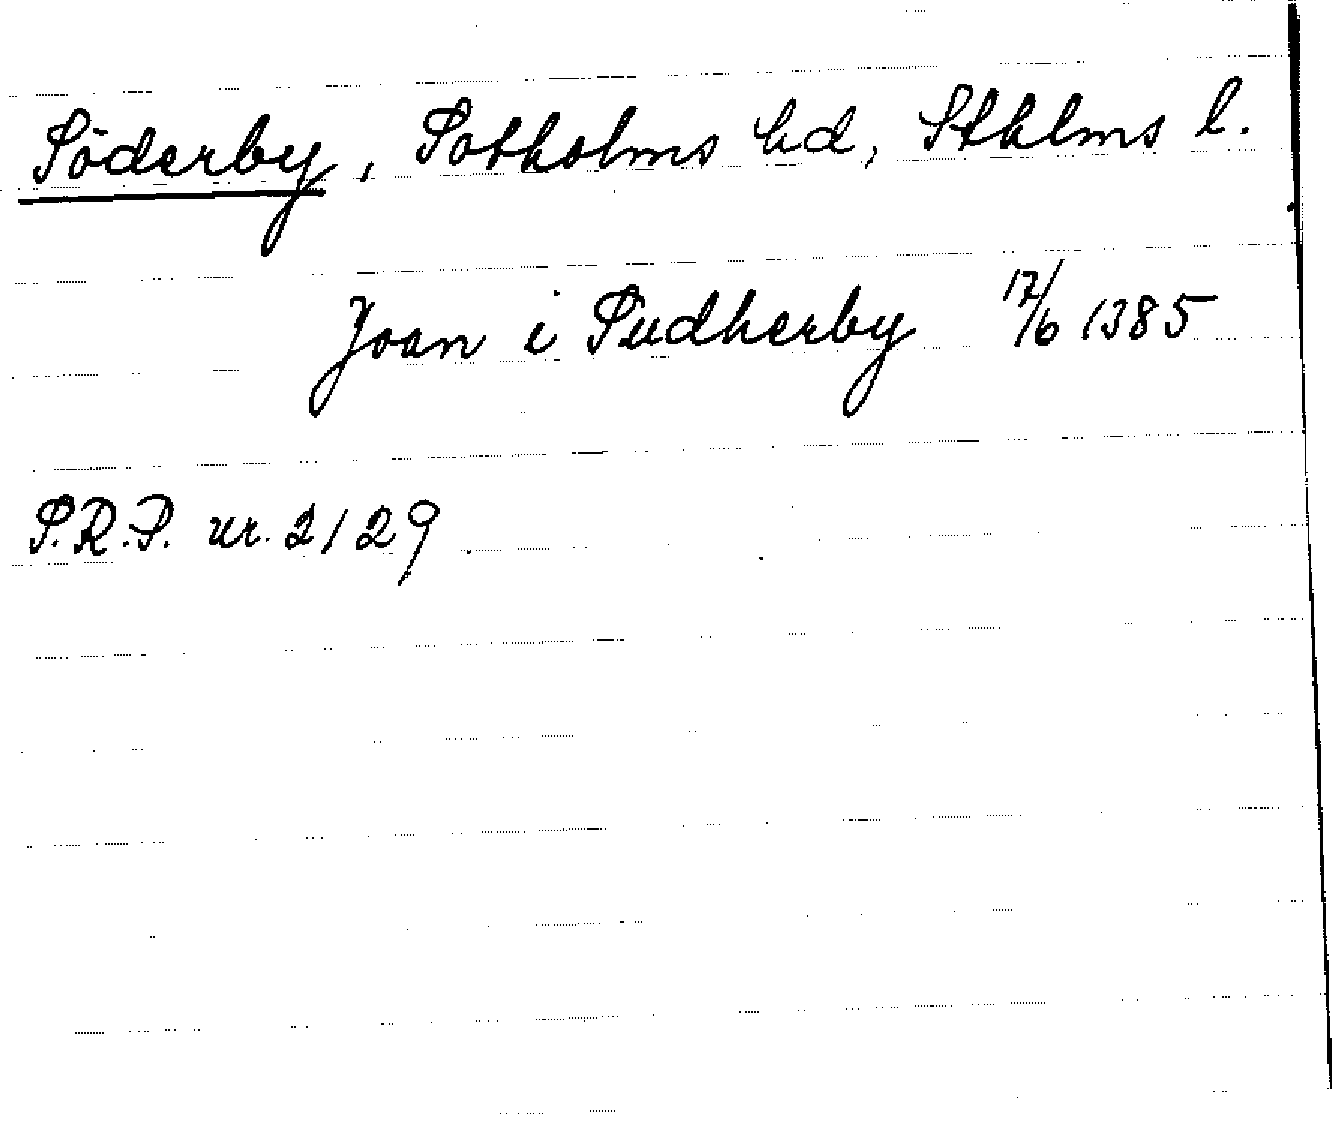 Söderby, Sotholms hd, Sthlms l.
Joan i Sudherby 17/6 1385
S.R.P. nr. 2129